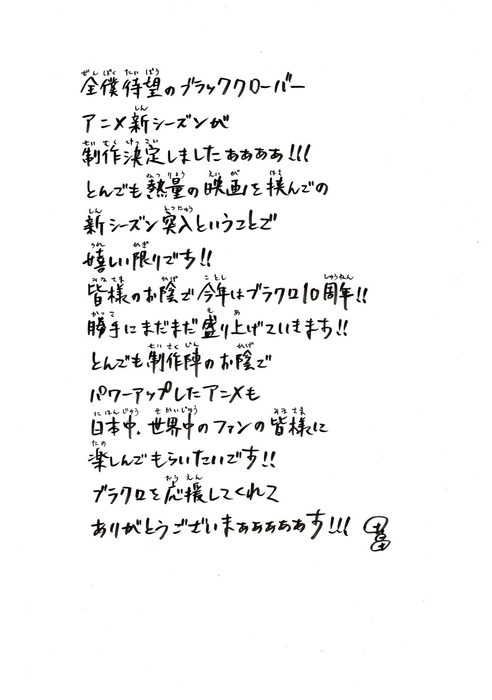 全僕待望のブラッククローバー
アニメ新シーズンが
制作決定しましたぁぁぁぁ!!!
とんでも熱量の映画を挟んでの
新シーズン突入ということで
嬉しい限りです!!
皆様のお陰で今年はブラクロ10周年!!
勝手にまだまだ盛り上げていきます!!
とんでも制作陣のお陰で
パワーアップしたアニメも
日本中、世界中のファンの皆様に
楽しんでもらいたいです!!
ブラクロを応援してくれて
ありがとうございまぁぁぁぁぁす!!! 田畠